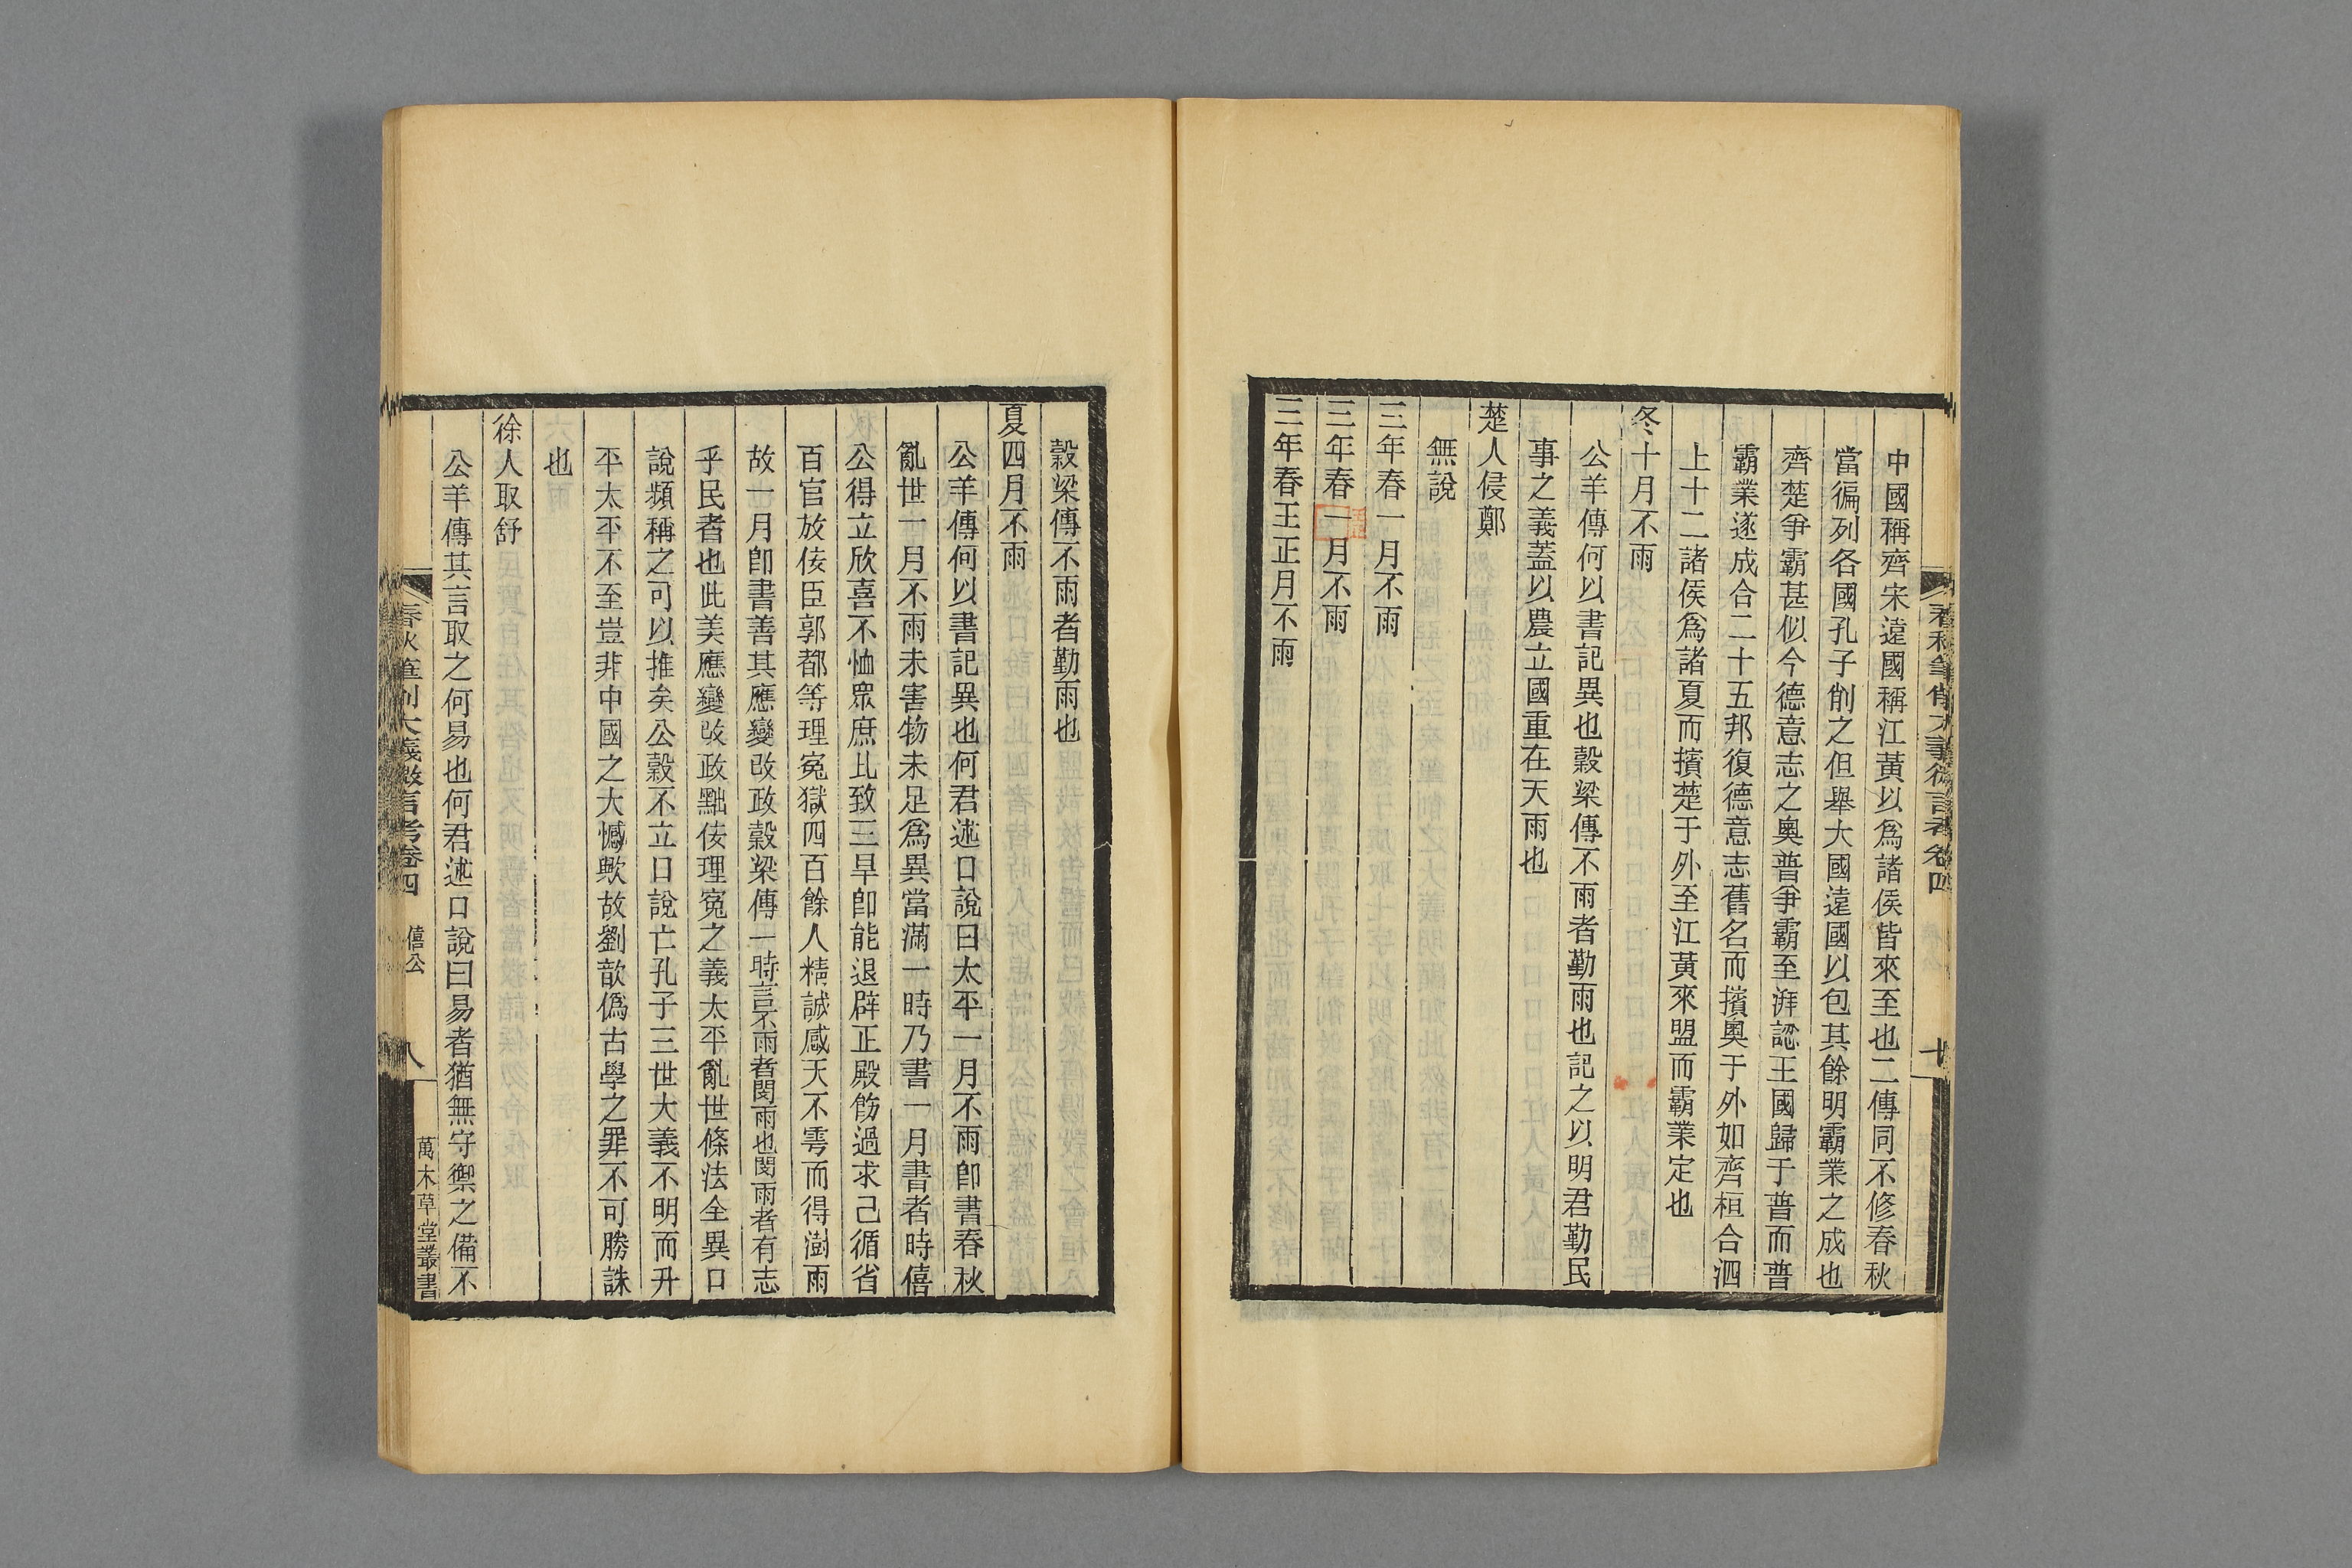 中國稱齊宋遠國稱江黃以爲諸侯皆來至也二傳同不修春秋
當徧列各國孔子削之但舉大國遠國以包其餘明霸業之成也
齊楚爭霸甚似今德意志之奧普爭霸至湃認王國歸于普而普
霸業遂成合二十五邦復德意志舊名而擯奧于外如齊桓合泗
上十二諸侯爲諸夏而擯楚于外至江黃來盟而霸業定也
冬十月不雨
公羊傳何以書記異也穀梁傳不雨者勤雨也記之以明君勤民
事之義蓋以農立國重在天雨也
楚人侵鄭
無說
三年春一月不雨
三年春一月不雨
三年春王正月不雨
春秋筆削大義微言考卷四
穀梁傳不雨者勤雨也
夏四月不雨
公羊傳何以書記異也何君述口說曰太平一月不雨卽書春秋
亂世一月不雨未害物未足爲異當滿一時乃書一月書者時僖
公得立欣喜不恤眾庶比致三旱卽能退辟正殿飭過求己循省
百官放佞臣郭都等理冤獄四百餘人精誠感天不雩而得澍雨
故一月卽書善其應變改政穀梁傳一時言不雨者閔雨也閔雨者有志
乎民者也此美應變改政黜佞理冤之義太平亂世條法全異口
說頻稱之可以推矣公穀不立口說亡孔子三世大義不明而升
平太平不至豈非中國之大憾歟故劉歆僞古學之罪不可勝誅
也
徐人取舒
公羊傳其言取之何易也何君述口說曰易者猶無守禦之備不
春秋筆削大義微言考卷四
僖公
八
萬木草堂叢書